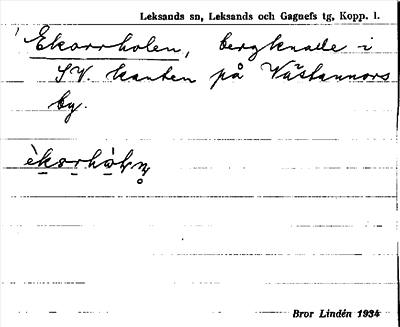 Leksands sn, Leksands och Gagnefs tg, Kopp. l.
Ekorrholen, bergknalle i
S.V. kanten på Västannors
by.
Bror Lindén 1934